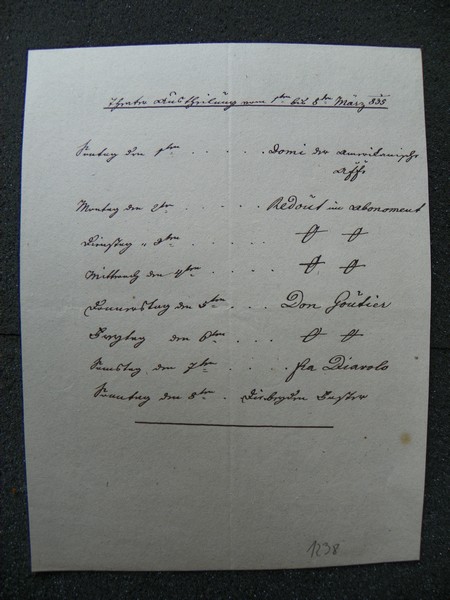 Theater Austheilung vom 1ten bis 8ten März 835
Sontag den 1ten . . . . . Domi der Amerikanische
Affe
Montag den 2ten . . . . . Redout im Abonoment
Dienstag " 3ten . . . .
Mittwoch den 4ten . . . .
Donnerstag den 5ten . . . Don Goutier
Freytag den 6ten . . .
Samstag den 7ten . . . . fra Diavolo
Sonntag den 8ten . . Die beyden
1238